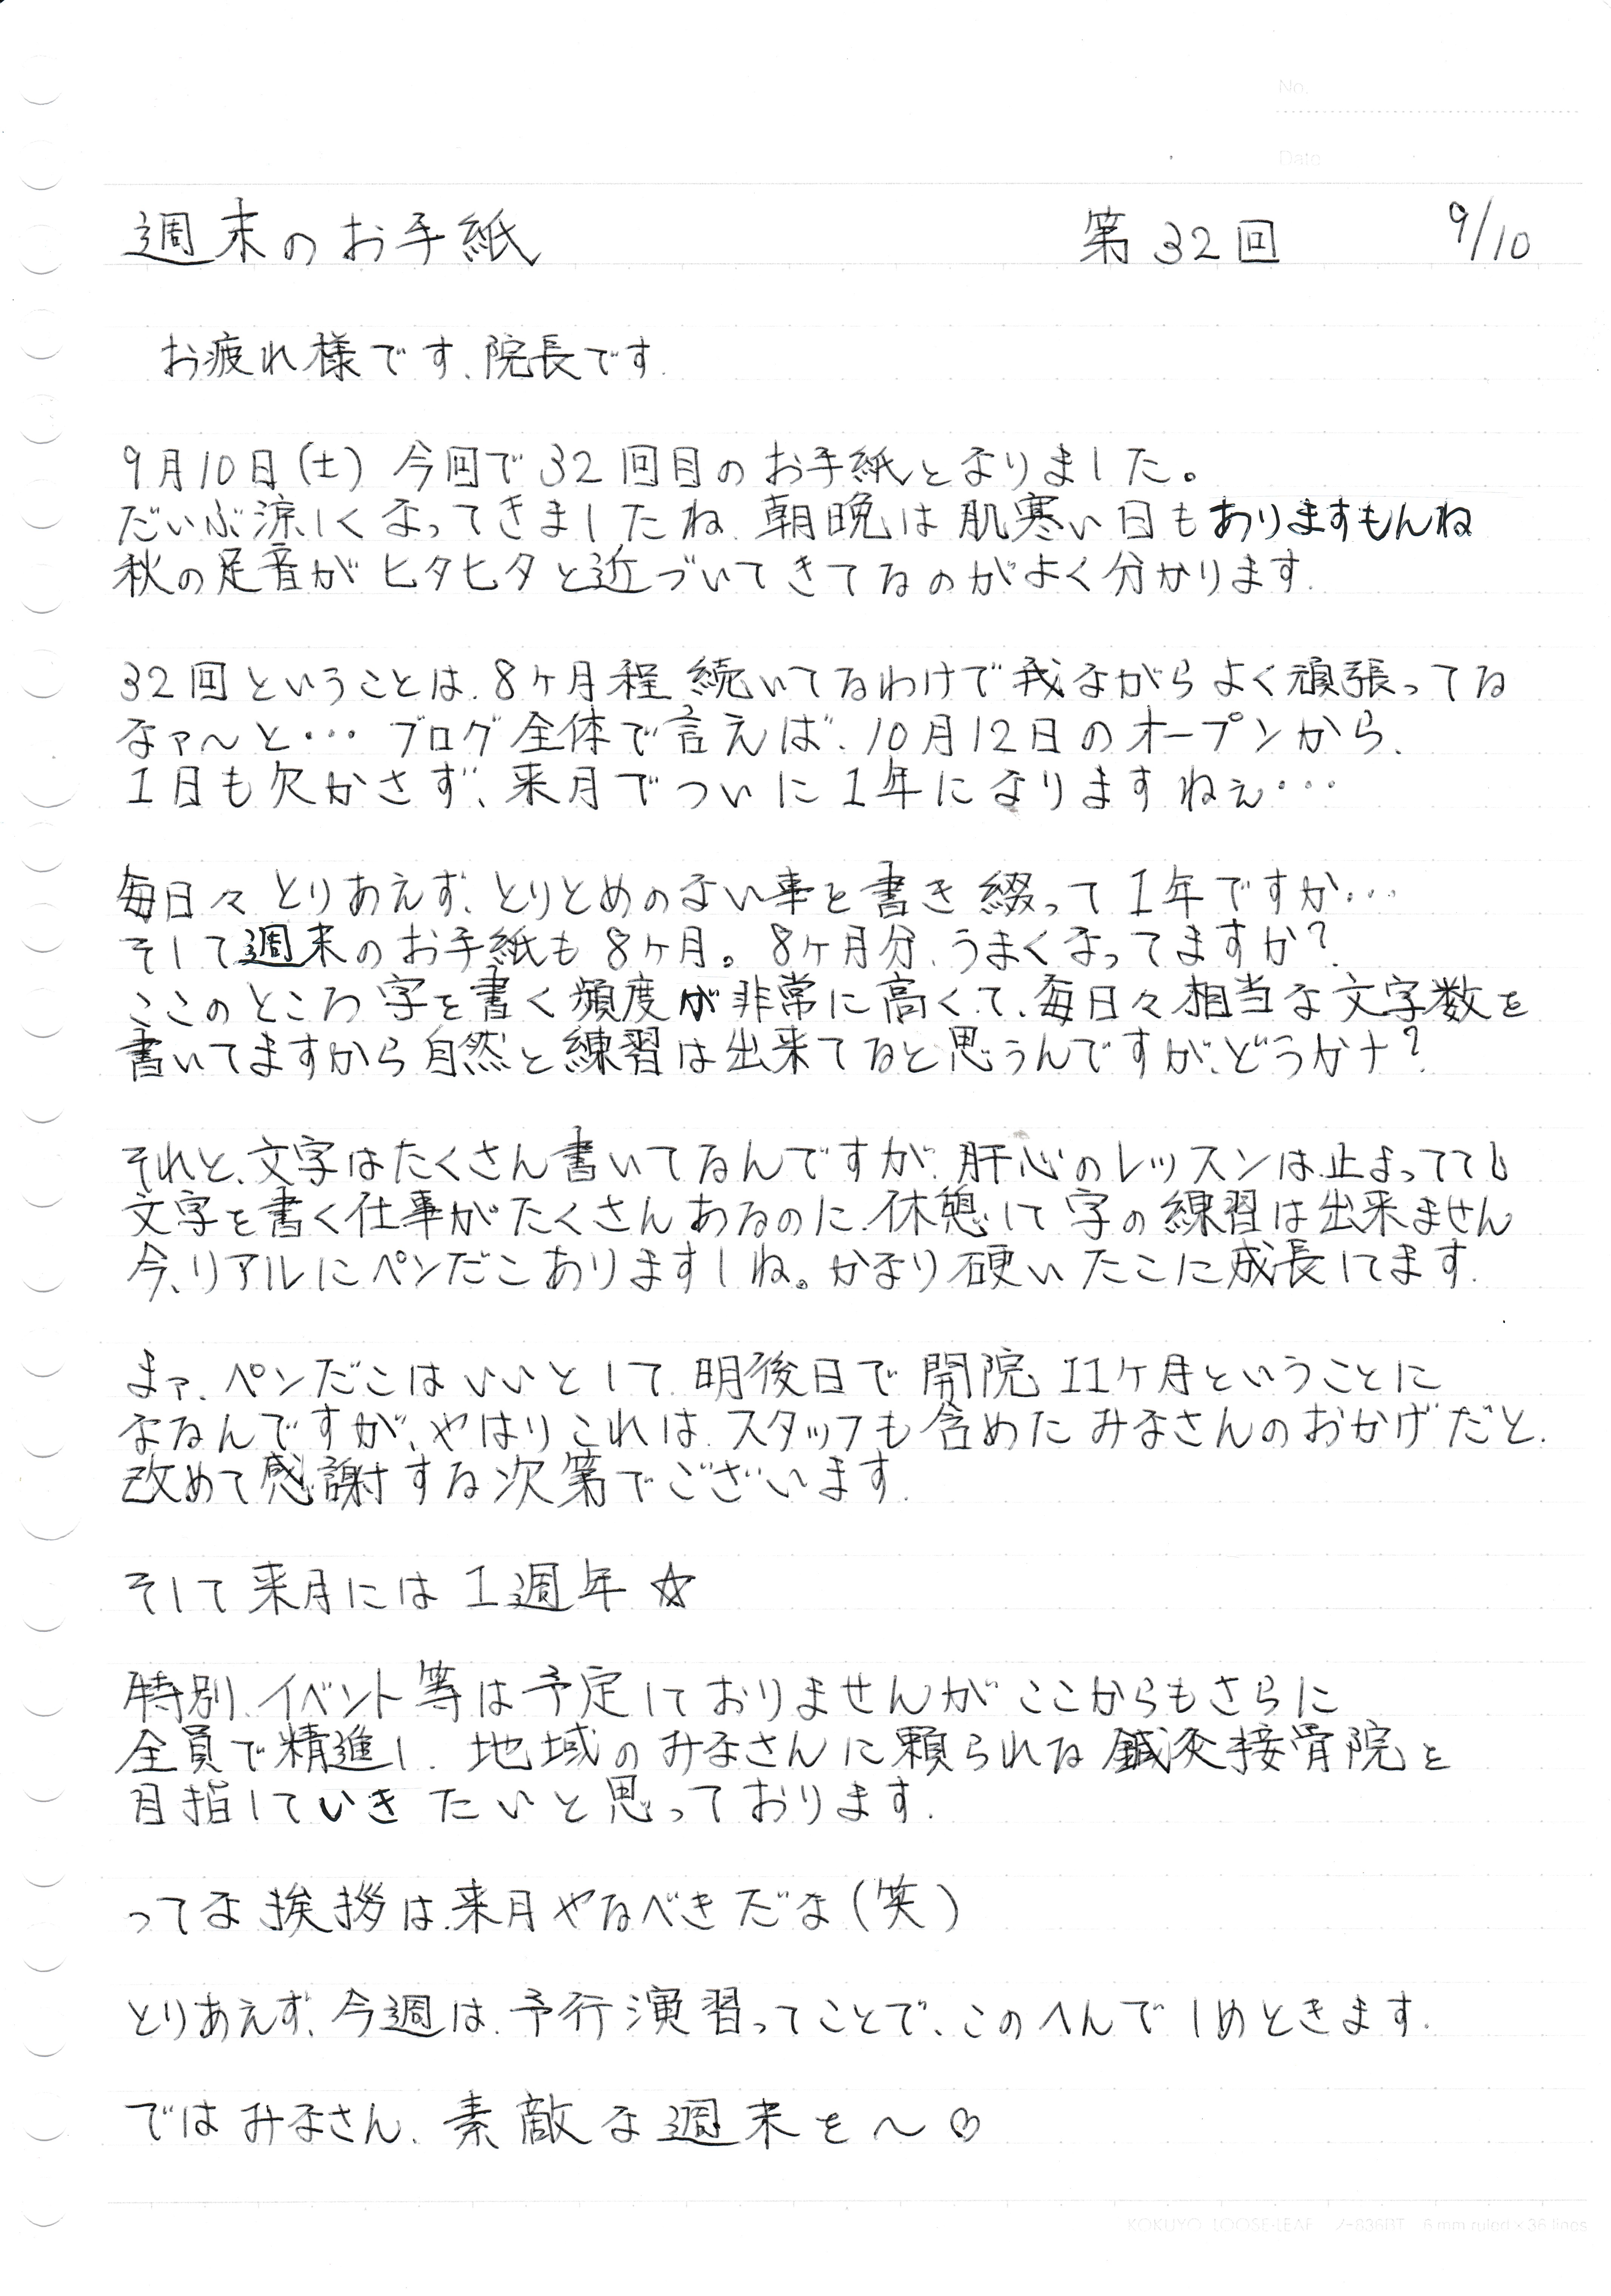 No.
Date
週末のお手紙 第32回 9/10
お疲れ様です、院長です.
9月10日(土) 今回で32回目のお手紙となりました。
だいぶ涼しくなってきましたね 朝晩は肌寒い日もありますもんね
秋の足音がヒタヒタと近づいてきてるのがよく分かります.
32回ということは、8ヶ月程続いてるわけで我ながらよく頑張ってる
なァ〜と… ブログ全体で言えば、10月12日のオープンから、
1日も欠かさず、来月でついに1年になりますねぇ…
毎日々とりあえず、とりとめのない事を書き綴って1年ですか…
そして週末のお手紙も8ヶ月。8ヶ月分、うまくなってますか?
ここのところ字を書く頻度が非常に高くて、毎日々相当な文字数を
書いてますから自然と練習は出来てると思うんですが、どうかナ?
それと、文字はたくさん書いてるんですが、肝心のレッスンは止まってても
文字を書く仕事がたくさんあるのに、休憩して字の練習は出来ません
今、リアルにペンだこありますしね。かなり硬いたこに成長してます.
まァ、ペンだこはいいとして、明後日で開院11ケ月ということに
なるんですが、やはりこれは、スタッフも含めたみなさんのおかげだと、
改めて感謝する次第でございます.
そして来月には1週年☆
特別、イベント等は予定しておりませんがここからもさらに
全員で精進し、地域のみなさんに頼られる鍼灸接骨院を
目指していきたいと思っております.
ってな挨拶は、来月やるべきだな(笑)
とりあえず、今週は、予行演習ってことで、このへんでしめときます.
ではみなさん、素敵な週末を〜♡
KOKUYO LOOSE-LEAF ノ-836BT 6 mm ruled × 36 lines